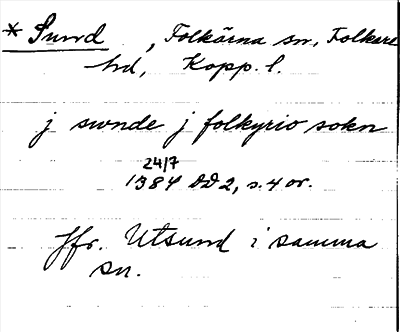 * Sund, Folkärna sn, Folkare
hd, Kopp. l.
j swnde j folkyrio sokn
24/7
1384 DD 2, s. 4 or.
Jfr. Utsund i samma
sn.